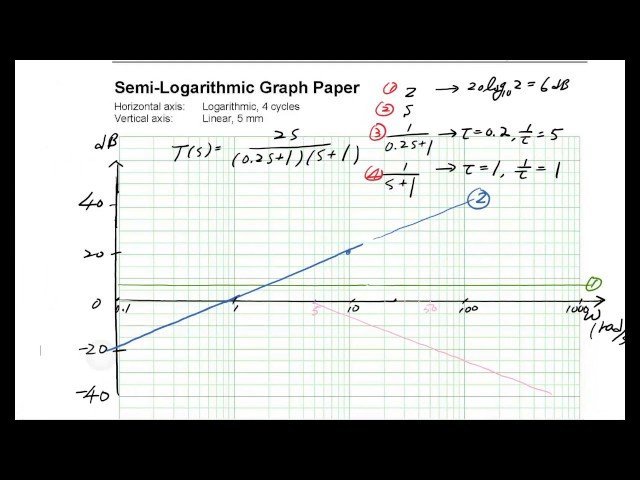 Semi-Logarithmic Graph Paper
Horizontal axis: Logarithmic, 4 cycles
Vertical axis: Linear, 5 mm
① 2 → 20log₁₀2 = 6dB
② s
③ 1/(0.2s+1) → τ=0.2, 1/τ = 5
④ 1/(s+1) → τ=1, 1/τ = 1
T(s) = 2s/((0.2s+1)(s+1))
dB
40
20
0
-20
-40
0.1 1 5 10 50 100 1000
ω
(rad/s
①
②